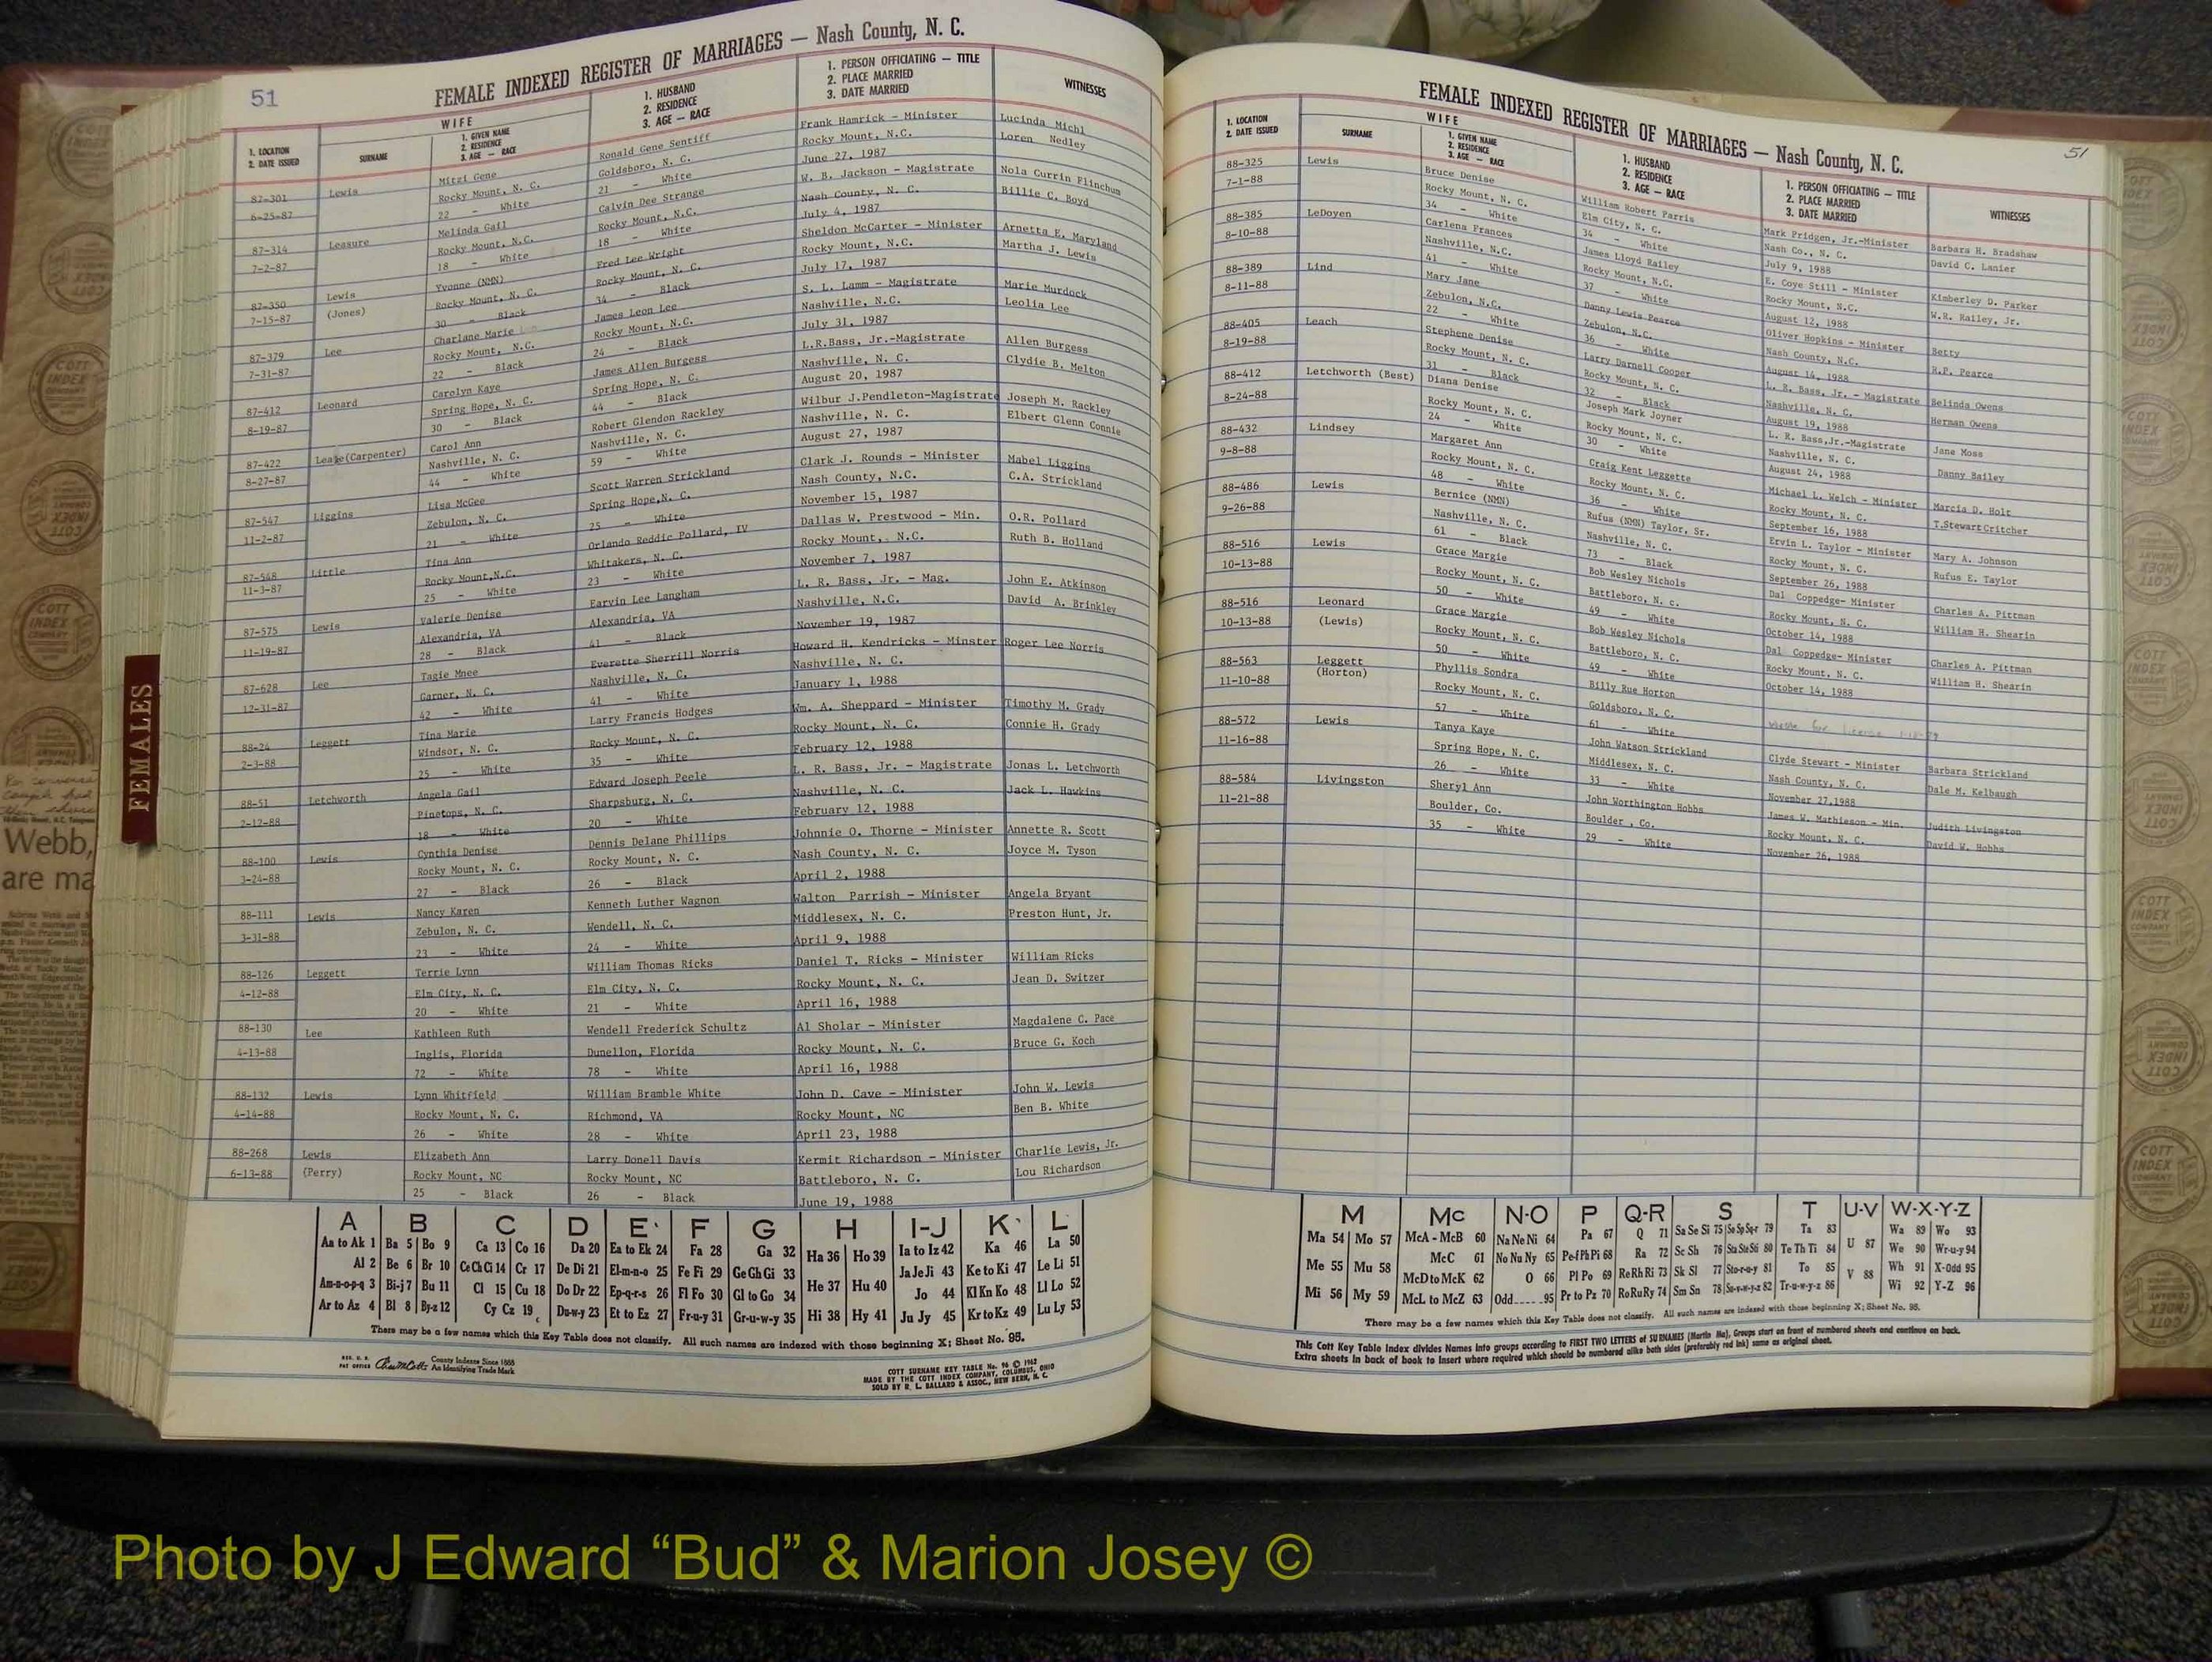 51
FEMALE INDEXED REGISTER OF MARRIAGES — Nash County, N. C.
1. LOCATION
2. DATE ISSUED
WIFE
SURNAME
1. GIVEN NAME
2. RESIDENCE
3. AGE — RACE
1. HUSBAND
2. RESIDENCE
3. AGE — RACE
1. PERSON OFFICIATING — TITLE
2. PLACE MARRIED
3. DATE MARRIED
WITNESSES
87-301 Lewis Mitzi Gene Ronald Gene Sentiff Frank Hamrick - Minister Lucinda Michl
6-25-87 Rocky Mount, N. C. Goldsboro, N. C. Rocky Mount, N.C. Loren Nedley
22 - White 21 - White June 27, 1987
87-314 Leasure Melinda Gail Calvin Dee Strange W. B. Jackson - Magistrate Nola Currin Flinchum
7-2-87 Rocky Mount, N.C. Rocky Mount, N.C. Nash County, N. C. Billie C. Boyd
18 - White 18 - White July 4, 1987
87-350 Lewis Yvonne (NMN) Fred Lee Wright Sheldon McCarter - Minister Arnetta E. Maryland
7-15-87 (Jones) Rocky Mount, N. C. Rocky Mount, N. C. Rocky Mount, N.C. Martha J. Lewis
30 - Black 34 - Black July 17, 1987
87-379 Lee Charlane Marie James Leon Lee S. L. Lamm - Magistrate Marie Murdock
7-31-87 Rocky Mount, N.C. Rocky Mount, N.C. Nashville, N.C. Leolia Lee
22 - Black 24 - Black July 31, 1987
87-412 Leonard Carolyn Kaye James Allen Burgess L.R.Bass, Jr.-Magistrate Allen Burgess
8-19-87 Spring Hope, N. C. Spring Hope, N. C. Nashville, N. C. Clydie B. Melton
30 - Black 44 - Black August 20, 1987
87-422 (Carpenter) Carol Ann Robert Glendon Rackley Wilbur J.Pendleton-Magistrate Joseph M. Rackley
8-27-87 Nashville, N. C. Nashville, N. C. Nashville, N. C. Elbert Glenn Connie
44 - White 59 - White August 27, 1987
87-547 Liggins Lisa McGee Scott Warren Strickland Clark J. Rounds - Minister Mabel Liggins
11-2-87 Zebulon, N. C. Spring Hope,N. C. Nash County, N.C. C.A. Strickland
21 - White 25 - White November 15, 1987
87-548 Little Tina Ann Orlando Reddic Pollard, IV Dallas W. Prestwood - Min. O.R. Pollard
11-3-87 Rocky Mount,N.C. Whitakers, N. C. Rocky Mount,. N.C. Ruth B. Holland
25 - White 23 - White November 7, 1987
87-575 Lewis Valerie Denise Earvin Lee Langham L. R. Bass, Jr. - Mag. John E. Atkinson
11-19-87 Alexandria, VA Alexandria, VA Nashville, N.C. David A. Brinkley
28 - Black 41 - Black November 19, 1987
87-628 Lee Tagie Mnee Everette Sherrill Norris Howard H. Kendricks - Minster Roger Lee Norris
12-31-87 Garner, N. C. Nashville, N. C. Nashville, N. C.
42 - White 41 - White January 1, 1988
88-24 Leggett Tina Marie Larry Francis Hodges Wm. A. Sheppard - Minister Timothy M. Grady
2-3-88 Windsor, N. C. Rocky Mount, N. C. Rocky Mount, N. C. Connie H. Grady
25 - White 35 - White February 12, 1988
88-51 Letchworth Angela Gail Edward Joseph Peele L. R. Bass, Jr. - Magistrate Jonas L. Letchworth
2-12-88 Pinetops, N. C. Sharpsburg, N. C. Nashville, N. C. Jack L. Hawkins
18 - White 20 - White February 12, 1988
88-100 Lewis Cynthia Denise Dennis Delane Phillips Johnnie O. Thorne - Minister Annette R. Scott
3-24-88 Rocky Mount, N. C. Rocky Mount, N. C. Nash County, N. C. Joyce M. Tyson
27 - Black 26 - Black April 2, 1988
88-111 Lewis Nancy Karen Kenneth Luther Wagnon Walton Parrish - Minister Angela Bryant
3-31-88 Zebulon, N. C. Wendell, N. C. Middlesex, N. C. Preston Hunt, Jr.
23 - White 24 - White April 9, 1988
88-126 Leggett Terrie Lynn William Thomas Ricks Daniel T. Ricks - Minister William Ricks
4-12-88 Elm City, N. C. Elm City, N. C. Rocky Mount, N. C. Jean D. Switzer
20 - White 21 - White April 16, 1988
88-130 Lee Kathleen Ruth Wendell Frederick Schultz Al Sholar - Minister Magdalene C. Pace
4-13-88 Inglis, Florida Dunellon, Florida Rocky Mount, N. C. Bruce G. Koch
72 - White 78 - White April 16, 1988
88-132 Lewis Lynn Whitfield William Bramble White John D. Cave - Minister John W. Lewis
4-14-88 Rocky Mount, N. C. Richmond, VA Rocky Mount, NC Ben B. White
26 - White 28 - White April 23, 1988
88-268 Lewis Elizabeth Ann Larry Donell Davis Kermit Richardson - Minister Charlie Lewis, Jr.
6-13-88 (Perry) Rocky Mount, NC Rocky Mount, NC Battleboro, N. C. Lou Richardson
25 - Black 26 - Black June 19, 1988
A B C D E F G H I-J K L
Aa to Ak 1 Ba 5 Bo 9 Ca 13 Co 16 Da 20 Ea to Ek 24 Fa 28 Ga 32 Ha 36 Ho 39 Ia to Iz 42 Ka 46 La 50
Al 2 Be 6 Br 10 Ce Ch Ci 14 Cr 17 De Di 21 El-m-n-o 25 Fe Fi 29 Ge Gh Gi 33 He 37 Hu 40 Ja Je Ji 43 Ke to Ki 47 Le Li 51
Am-n-o-p-q 3 Bi-j 7 Bu 11 Cl 15 Cu 18 Do Dr 22 Ep-q-r-s 26 Fl Fo 30 Gl to Go 34 Jo 44 Kl Kn Ko 48 Ll Lo 52
Ar to Az 4 Bl 8 By-z 12 Cy Cz 19 Du-w-y 23 Et to Ez 27 Fr-u-y 31 Gr-u-w-y 35 Hi 38 Hy 41 Ju Jy 45 Kr to Kz 49 Lu Ly 53
There may be a few names which this Key Table does not classify. All such names are indexed with those beginning X; Sheet No. 95.
REG. U. S. PAT OFFICE
County Indexes Since 1888
An Identifying Trade Mark
COTT SURNAME KEY TABLE No. 96 © 1962
MADE BY THE COTT INDEX COMPANY, COLUMBUS, OHIO
SOLD BY R. L. BALLARD & ASSOC., NEW BERN, N. C.
FEMALE INDEXED REGISTER OF MARRIAGES — Nash County, N. C.
51
1. LOCATION
2. DATE ISSUED
WIFE
SURNAME
1. GIVEN NAME
2. RESIDENCE
3. AGE — RACE
1. HUSBAND
2. RESIDENCE
3. AGE — RACE
1. PERSON OFFICIATING — TITLE
2. PLACE MARRIED
3. DATE MARRIED
WITNESSES
88-325 Lewis Bruce Denise William Robert Parris Mark Pridgen, Jr.-Minister Barbara H. Bradshaw
7-1-88 Rocky Mount, N. C. Elm City, N. C. Nash Co., N. C. David C. Lanier
34 - White 34 - White July 9, 1988
88-385 LeDoyen Carlena Frances James Lloyd Railey E. Coye Still - Minister Kimberley D. Parker
8-10-88 Nashville, N.C. Rocky Mount, N.C. Rocky Mount, N.C. W.R. Railey, Jr.
41 - White 37 - White August 12, 1988
88-389 Lind Mary Jane Danny Lewis Pearce Oliver Hopkins - Minister Betty
8-11-88 Zebulon, N.C. Zebulon, N.C. Nash County, N.C. R.P. Pearce
22 - White 36 - White August 14, 1988
88-405 Leach Stephene Denise Larry Darnell Cooper L. R. Bass, Jr. - Magistrate Belinda Owens
8-19-88 Rocky Mount, N. C. Rocky Mount, N. C. Nashville, N. C. Herman Owens
31 - Black 32 - Black August 19, 1988
88-412 Letchworth (Best) Diana Denise Joseph Mark Joyner L. R. Bass,Jr.-Magistrate Jane Moss
8-24-88 Rocky Mount, N. C. Rocky Mount, N. C. Nashville, N. C. Danny Bailey
24 - White 30 - White August 24, 1988
88-432 Lindsey Margaret Ann Craig Kent Leggette Michael L. Welch - Minister Marcia D. Holt
9-8-88 Rocky Mount, N. C. Rocky Mount, N. C. Rocky Mount, N. C. T.Stewart Critcher
48 - White 36 - White September 16, 1988
88-486 Lewis Bernice (NMN) Rufus (NMN) Taylor, Sr. Ervin L. Taylor - Minister Mary A. Johnson
9-26-88 Nashville, N. C. Nashville, N. C. Rocky Mount, N. C. Rufus E. Taylor
61 - Black 73 - Black September 26, 1988
88-516 Lewis Grace Margie Bob Wesley Nichols Dal Coppedge- Minister Charles A. Pittman
10-13-88 Rocky Mount, N. C. Battleboro, N. c. Rocky Mount, N. C. William H. Shearin
50 - White 49 - White October 14, 1988
88-516 Leonard Grace Margie Bob Wesley Nichols Dal Coppedge- Minister Charles A. Pittman
10-13-88 (Lewis) Rocky Mount, N. C. Battleboro, N. C. Rocky Mount, N. C. William H. Shearin
50 - White 49 - White October 14, 1988
88-563 Leggett Phyllis Sondra Billy Rue Horton
11-10-88 (Horton) Rocky Mount, N. C. Goldsboro, N. C.
57 - White 61 - White
88-572 Lewis Tanya Kaye John Watson Strickland Clyde Stewart - Minister Barbara Strickland
11-16-88 Spring Hope, N. C. Middlesex, N. C. Nash County, N. C. Dale M. Kelbaugh
26 - White 33 - White November 27,1988
88-584 Livingston Sheryl Ann John Worthington Hobbs James W. Mathieson - Min. Judith Livingston
11-21-88 Boulder, Co. Boulder , Co. Rocky Mount, N. C. David W. Hobbs
35 - White 29 - White November 26, 1988
M Mc N-O P Q-R S T U-V W-X-Y-Z
Ma 54 Mo 57 McA - McB 60 Na Ne Ni 64 Pa 67 Q 71 Sa Se Si 75 So Sp Sq-r 79 Ta 83 U 87 Wa 89 Wo 93
Me 55 Mu 58 McC 61 No Nu Ny 65 Pe-f Ph Pi 68 Ra 72 Sc Sh 76 Sta Ste Sti 80 Te Th Ti 84 We 90 Wr-u-y 94
McD to McK 62 O 66 Pl Po 69 Re Rh Ri 73 Sk Sl 77 Sto-r-u-y 81 To 85 V 88 Wh 91 X-Odd 95
Mi 56 My 59 McL to McZ 63 Odd.....95 Pr to Pz 70 Ro Ru Ry 74 Sm Sn 78 Su-v-w-y-z 82 Tr-u-w-y-z 86 Wi 92 Y-Z 96
There may be a few names which this Key Table does not classify. All such names are indexed with those beginning X; Sheet No. 95.
This Cott Key Table Index divides Names into groups according to FIRST TWO LETTERS of SURNAMES (Martin Ma), Groups start on front of numbered sheets and continue on back.
Extra sheets in back of book to insert where required which should be numbered alike both sides (preferably red ink) same as original sheet.
FEMALES
Webb,
are ma
COTT
INDEX
COMPANY
Photo by J Edward “Bud” & Marion Josey ©